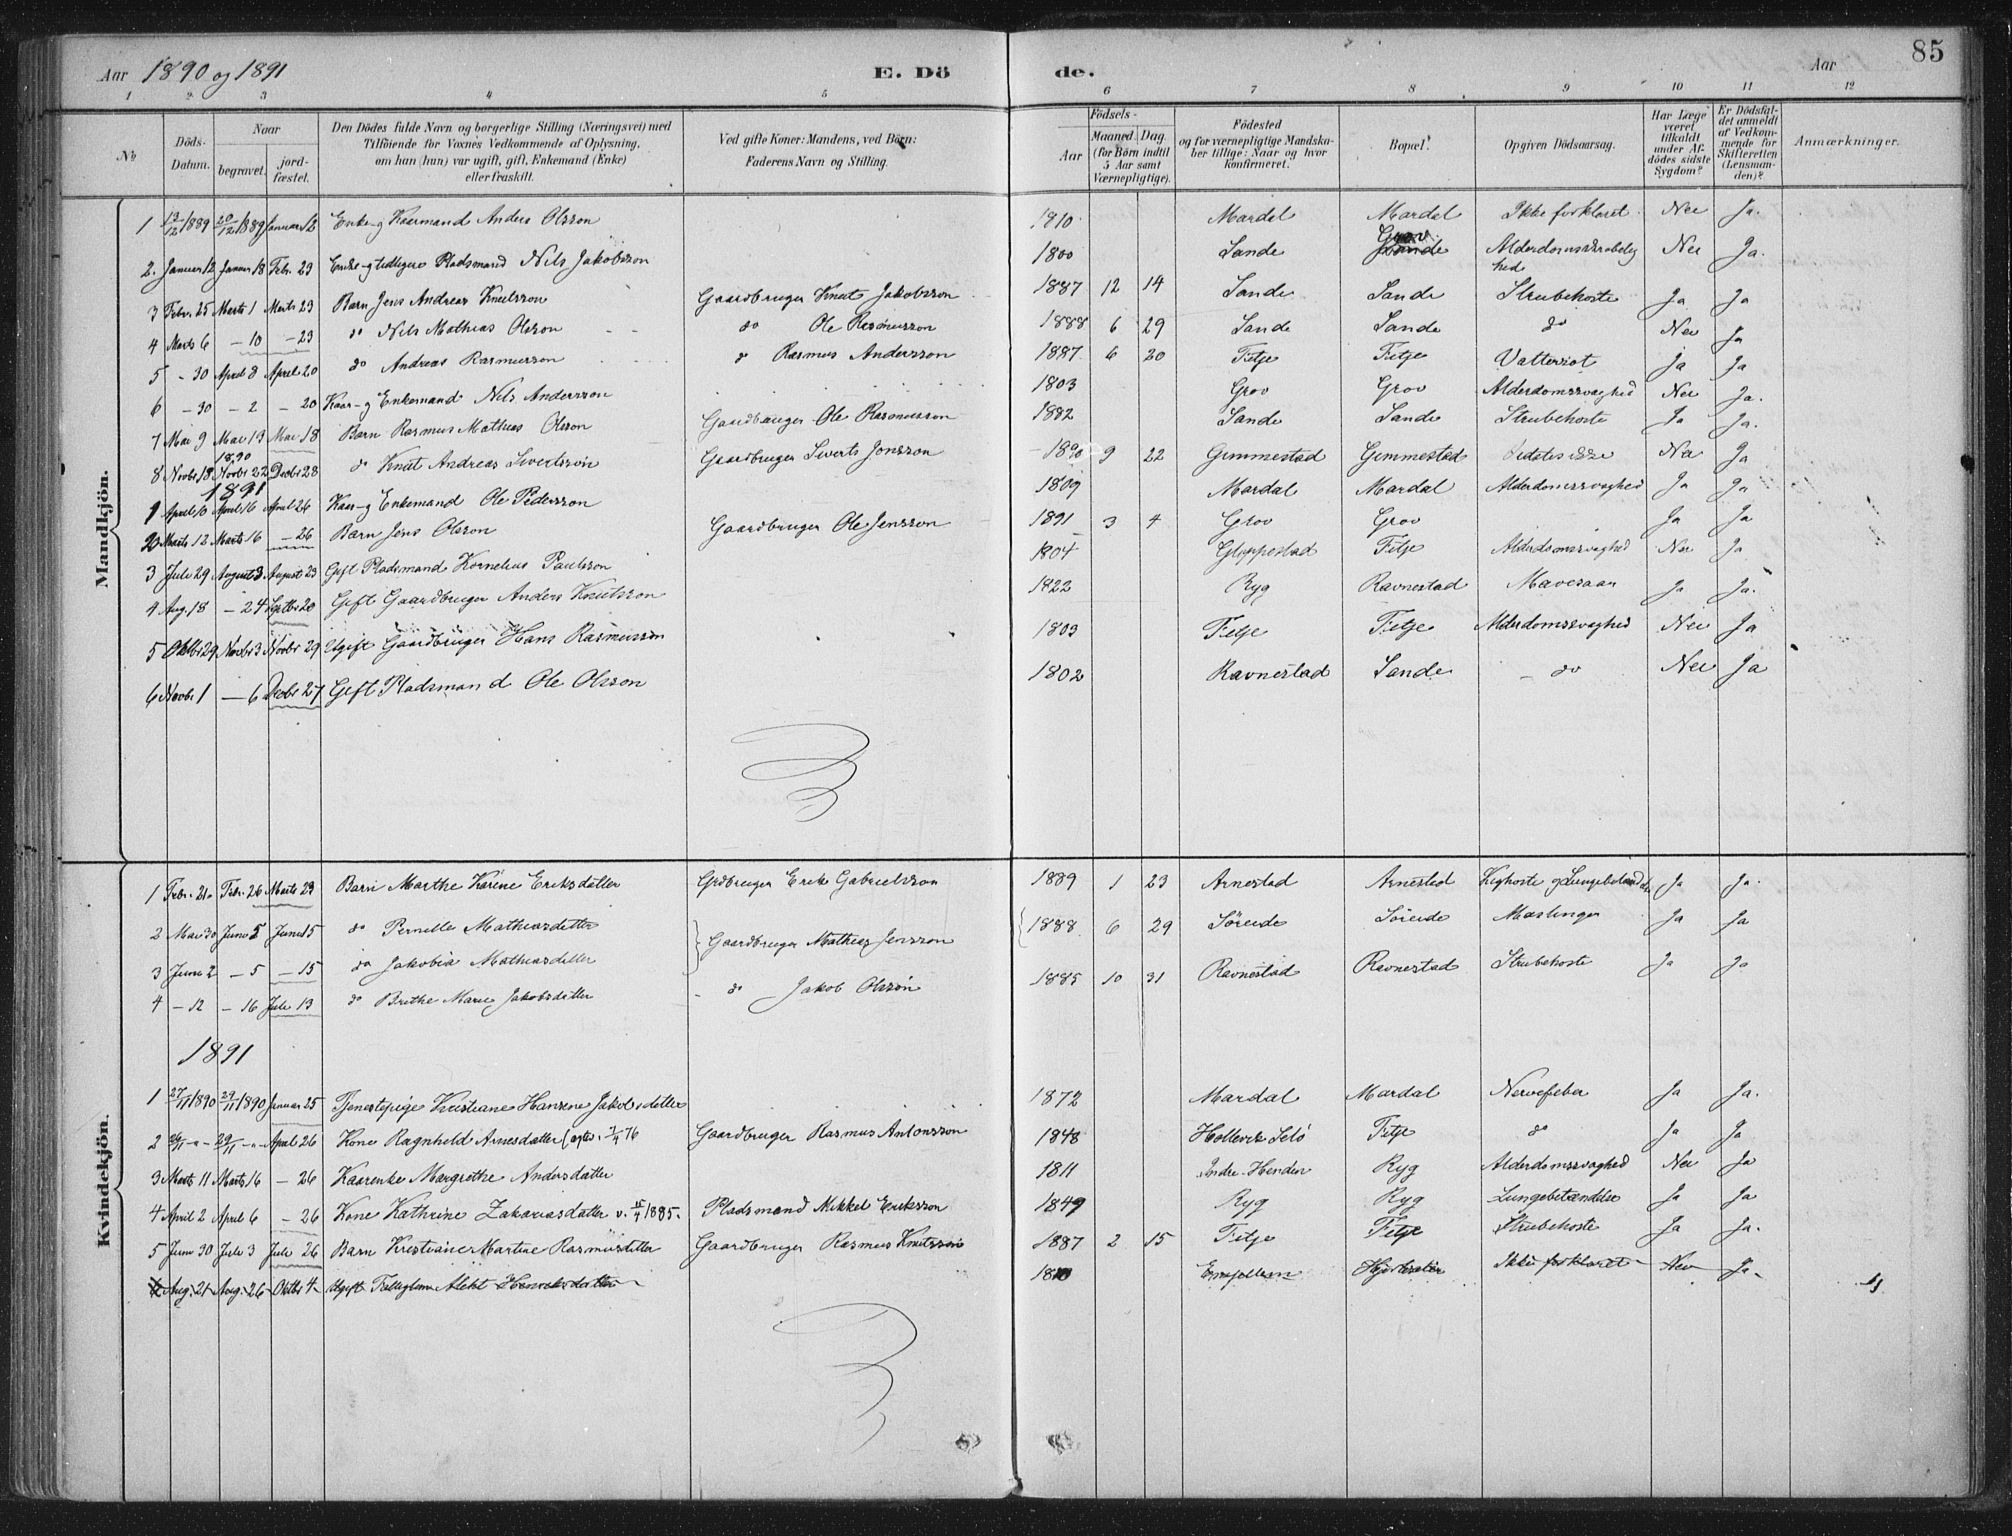 Aar 1890 og 1891 E. Dö de. Aar 85
1 2 3 4 5 6 7 8 9 10 11 12
No Döds-Datum. Naar begravet. jordfæstet. Den Dödes fulde Navn og borgerlige Stilling (Næringsvei) med Tilföiende for Voxnes Vedkommende af Oplysning, om han (hun) var ugift, gift, Enkemand (Enke) eller fraskilt. Ved gifte Koner: Mandens, ved Börn: Faderens Navn og Stilling. Födsels- Aar Maaned Dag (for Börn indtil 5 Aar samt Værnepligtige). Födested og for værnepligtige Mandskaber tillige: Naar og hvor konfirmeret. Bopæl. Opgiven Dödsaarsag. Har Læge været tilkaldt under Afdödes sidste Sygdom? Er Dödsfaldet anmeldt af Vedkommende for Skifteretten (Lensmanden)? Anmærkninger.
Mandkjön.
1 13/12 1889 20/12 1889 Januar 12 Enke- og Kaarmand Anders Olsson 1810 Mardal Mardal Ikke forklaret Nei Ja.
2. Januar 12 Januar 18 Febr. 23 Enke- og tidligere Pladsmand Nils Jakobsson 1800 Sande Grov Sande Alderdomsskrøbelighed Nei Ja.
3 Febr. 25 Marts 1 Marts 23 Barn Jens Andreas Knutsson Gaardbruger Knut Jakobsson 1887 12 14 Sande Sande Strubehoste Ja Ja
4 Marts 6 - 10 - 23 do Nils Mathias Olsson do Ole Rasmusson 1888 6 29 Sande Sande do Nei Ja
5 - 30 April 8 April 20 do Andreas Rasmusson do Rasmus Andersson 1887 6 20 Fitje Fitje Ja Ja
6 - 30 - 2 - 20 Kaar- og Enkemand Nils Andersson 1803 Grov Grov Alderdomssvaghed Nei Ja.
7 Mai 9 Mai 13 Mai 18 Barn Rasmus Mathias Olsson Gaardbruger Ole Rasmusson 1882 Sande Sande Strubehoste Ja Ja.
1890
8 Novbr 18 Novbr 22 Decbr 28 do Knut Andreas Sivertsson Gaardbruger Siverts Jonsson 1890 9 22 Gimmestad Gimmestad Nei Ja
1891
1 April 10 April 16 April 26 Kaar- og Enkemand Ole Pedersson 1809 Mardal Mardal Alderdomssvaghed Ja Ja
2 Marts 12 Marts 16 - 26 Barn Jens Olsson Gaardbruger Ole Jensson 1891 3 4 Grov Grov Ja Ja
3 Juli 29 August 3 August 23 Gift Pladsmand Kornelius Paulsson 1804 Gloppestad Fitje Alderdomssvaghed Nei Ja
4 Aug. 18 - 24 Septbr 20 Gift Gaardbruger Anders Knutsson 1822 Ryg Ravnestad Mavesaar Ja Ja.
5 Oktbr 29 Novbr 3 Novbr 29 Ugift Gaardbruger Hans Rasmusson 1803 Fitje Fitje Alderdomssvaghed Nei Ja
6 Novbr 1 - 6 Decbr 27 Gift Pladsmand Ole Olsson 1802 Ravnestad Sande - do Nei Ja
Kvindekjön.
1 Febr. 21 Febr. 26 Marts 23 Barn Marthe Karine Eriksdatter Grdbruger Erik Gabrielsson 1889 1 23 Arnestad Arnestad Kighoste og Lungebetændelse Ja Ja.
2 Mai 30 Juni 5 Juni 15 do Pernille Mathiasdatter Gaardbruger Mathias Jensson 1888 6 29 Söreide Söreide Mæslinger Ja Ja
3 Juni 2 - 5 - 15 do Jakobia Mathiasdatter
4 - 12 - 16 Juli 13 do Brithe Marie Jakobsdatter do Jakob Olsson 1885 10 31 Ravnestad Ravnestad Strubehoste Ja Ja
1891
1 27/11 1890 29/11 1890 Januar 25 Tjenestepige Kristiane Hansine Jakobsdatter 1872 Mardal Mardal Nervefeber Ja Ja.
2 26/11 - 29/11 - April 26 Kone Ragnhild Arnesdatter Gaardbruger Rasmus Antonsson 1848 Fitje do Ja Ja
3 Marts 11 Marts 16 - 26 Kaarenke Margrethe Andersdatter 1811 Ryg Alderdomssvaghed Nei Ja
4 April 2 April 6 - 26 Kone Kathrine Zakariasdatter v. 15/4 1885. Pladsmand Mikkel Eriksson 1849 Ryg Ryg Lungebetændelse Ja Ja
5 Juni 30 Juli 3 Juli 26 Barn Kristiane Martine Rasmusdatter Gaardbruger Rasmus Knutsson 1887 2 15 Fitje Fitje Strubehoste Ja Ja.
6 Aug. 21 Aug. 26 Oktbr 4 Ugift Ikke forklaret Nei Ja